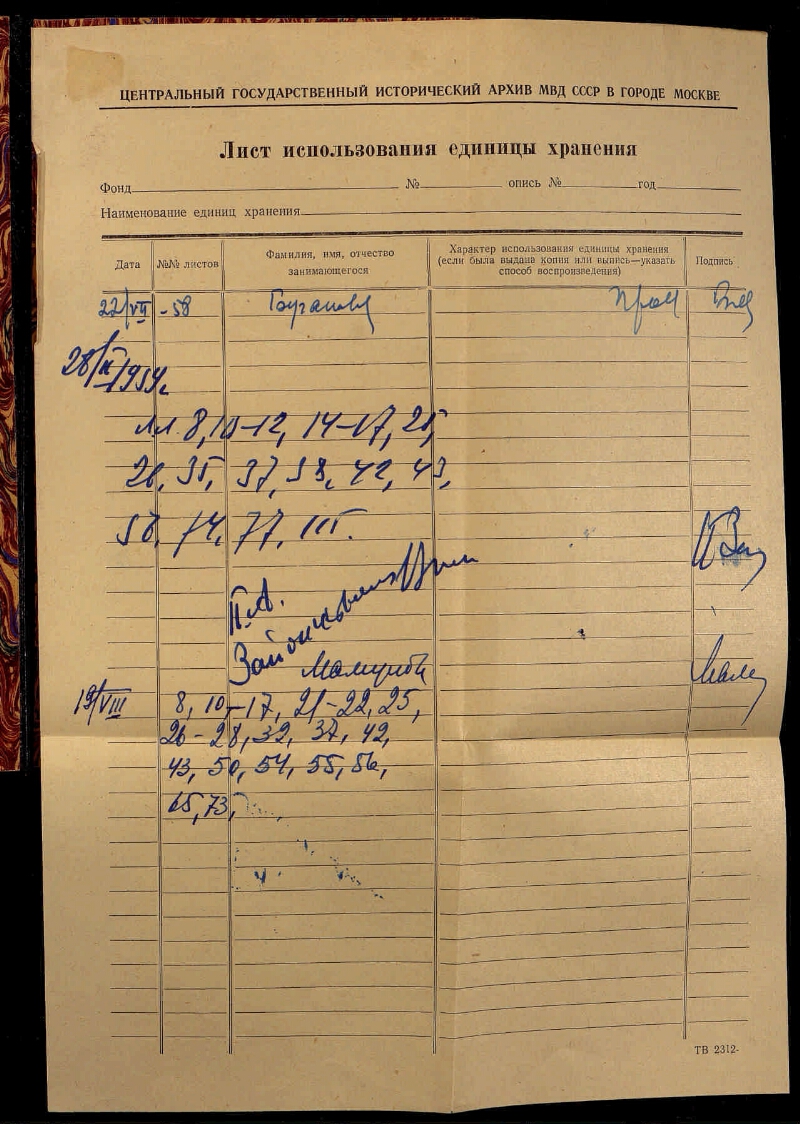 ЦЕНТРАЛЬНЫЙ ГОСУДАРСТВЕННЫЙ ИСТОРИЧЕСКИЙ АРХИВ МВД СССР В ГОРОДЕ МОСКВЕ
Лист использования единицы хранения
Фонд № опись № год
Наименование единиц хранения
Дата №№ листов Фамилия, имя, отчество занимающегося Характер использования единицы хранения (если была выдана копия или выпись—указать способ воспроизведения) Подпись
22/VII -58
28/II 1959г.
лл. 8, 10-12, 14-17, 25,
26, 35, 37, 38, 42, 43,
74, 77, III.
П.А.
Зайончковский
19/VIII 8, 10-17, 21-22, 25,
26-28, 32, 37, 42,
43, 50, 54, 55, 56,
65, 73,
ТВ 2312-